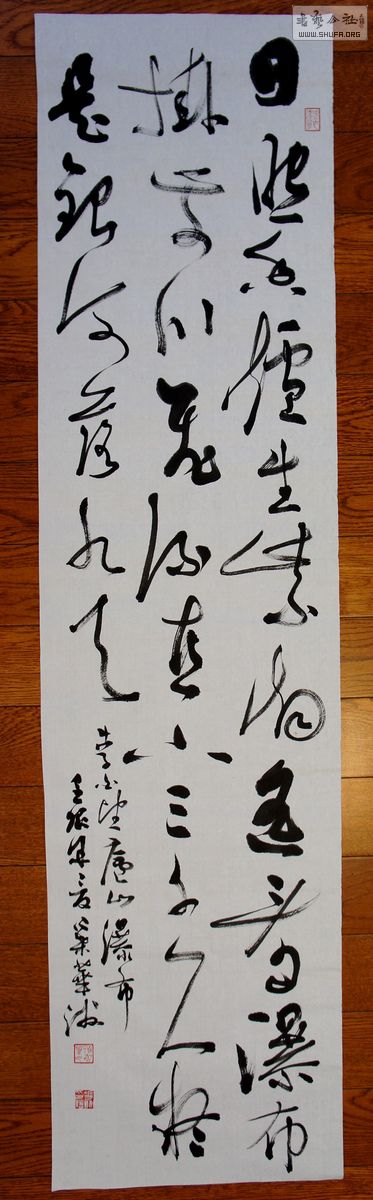 日照香爐生紫烟遥看瀑布
掛前川飛流直下三千尺疑
是銀河落九天
李白望廬山瀑布
壬辰夏華洲
WWW.SHUFA.ORG